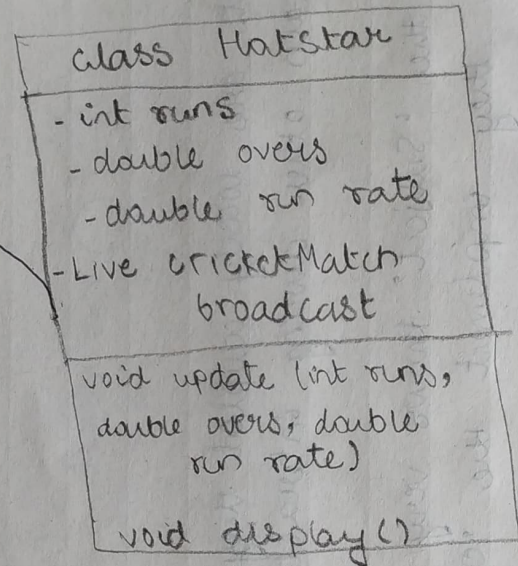 class Hotstar
- int runs
- double overs
- double run rate
- Live crickckMatch
broadcast
void update (int runs,
double overs, double
run rate)
void display()